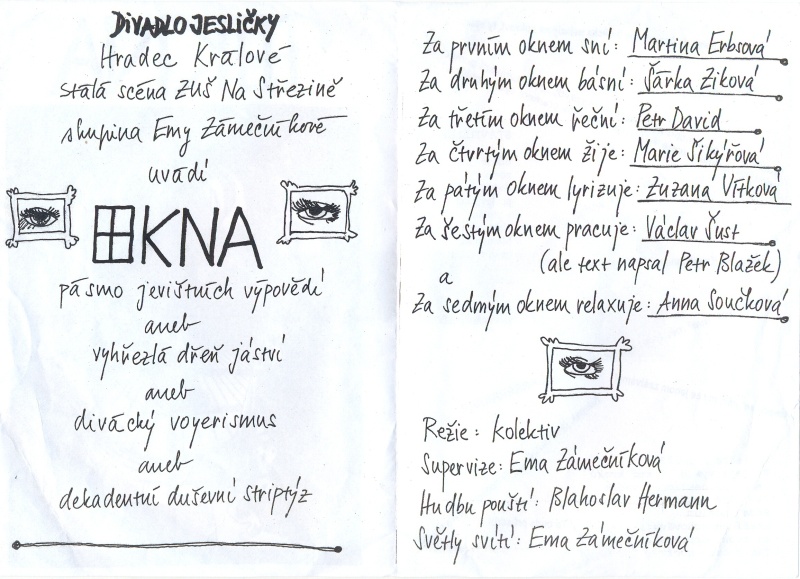 DIVADLO JESLIČKY
Hradec Králové
stálá scéna ZUŠ Na Střezině
skupina Emy Zámečníkové
uvádí
OKNA
pásmo jevištních výpovědí
aneb
vyhřezlá dřeň jáství
aneb
divácký voyerismus
aneb
dekadentní duševní striptýz
Za prvním oknem sní: Martina Erbsová
Za druhým oknem básní: Šárka Ziková
Za třetím oknem řeční: Petr David
Za čtvrtým oknem žije: Marie Šikýřová
Za pátým oknem lyrizuje: Zuzana Vítková
Za šestým oknem pracuje: Václav Šust
(ale text napsal Petr Blažek)
a
Za sedmým oknem relaxuje: Anna Součková
Režie: Kolektiv
Supervize: Ema Zámečníková
Hudbu pouští: Blahoslav Hermann
Světly svítí: Ema Zámečníková